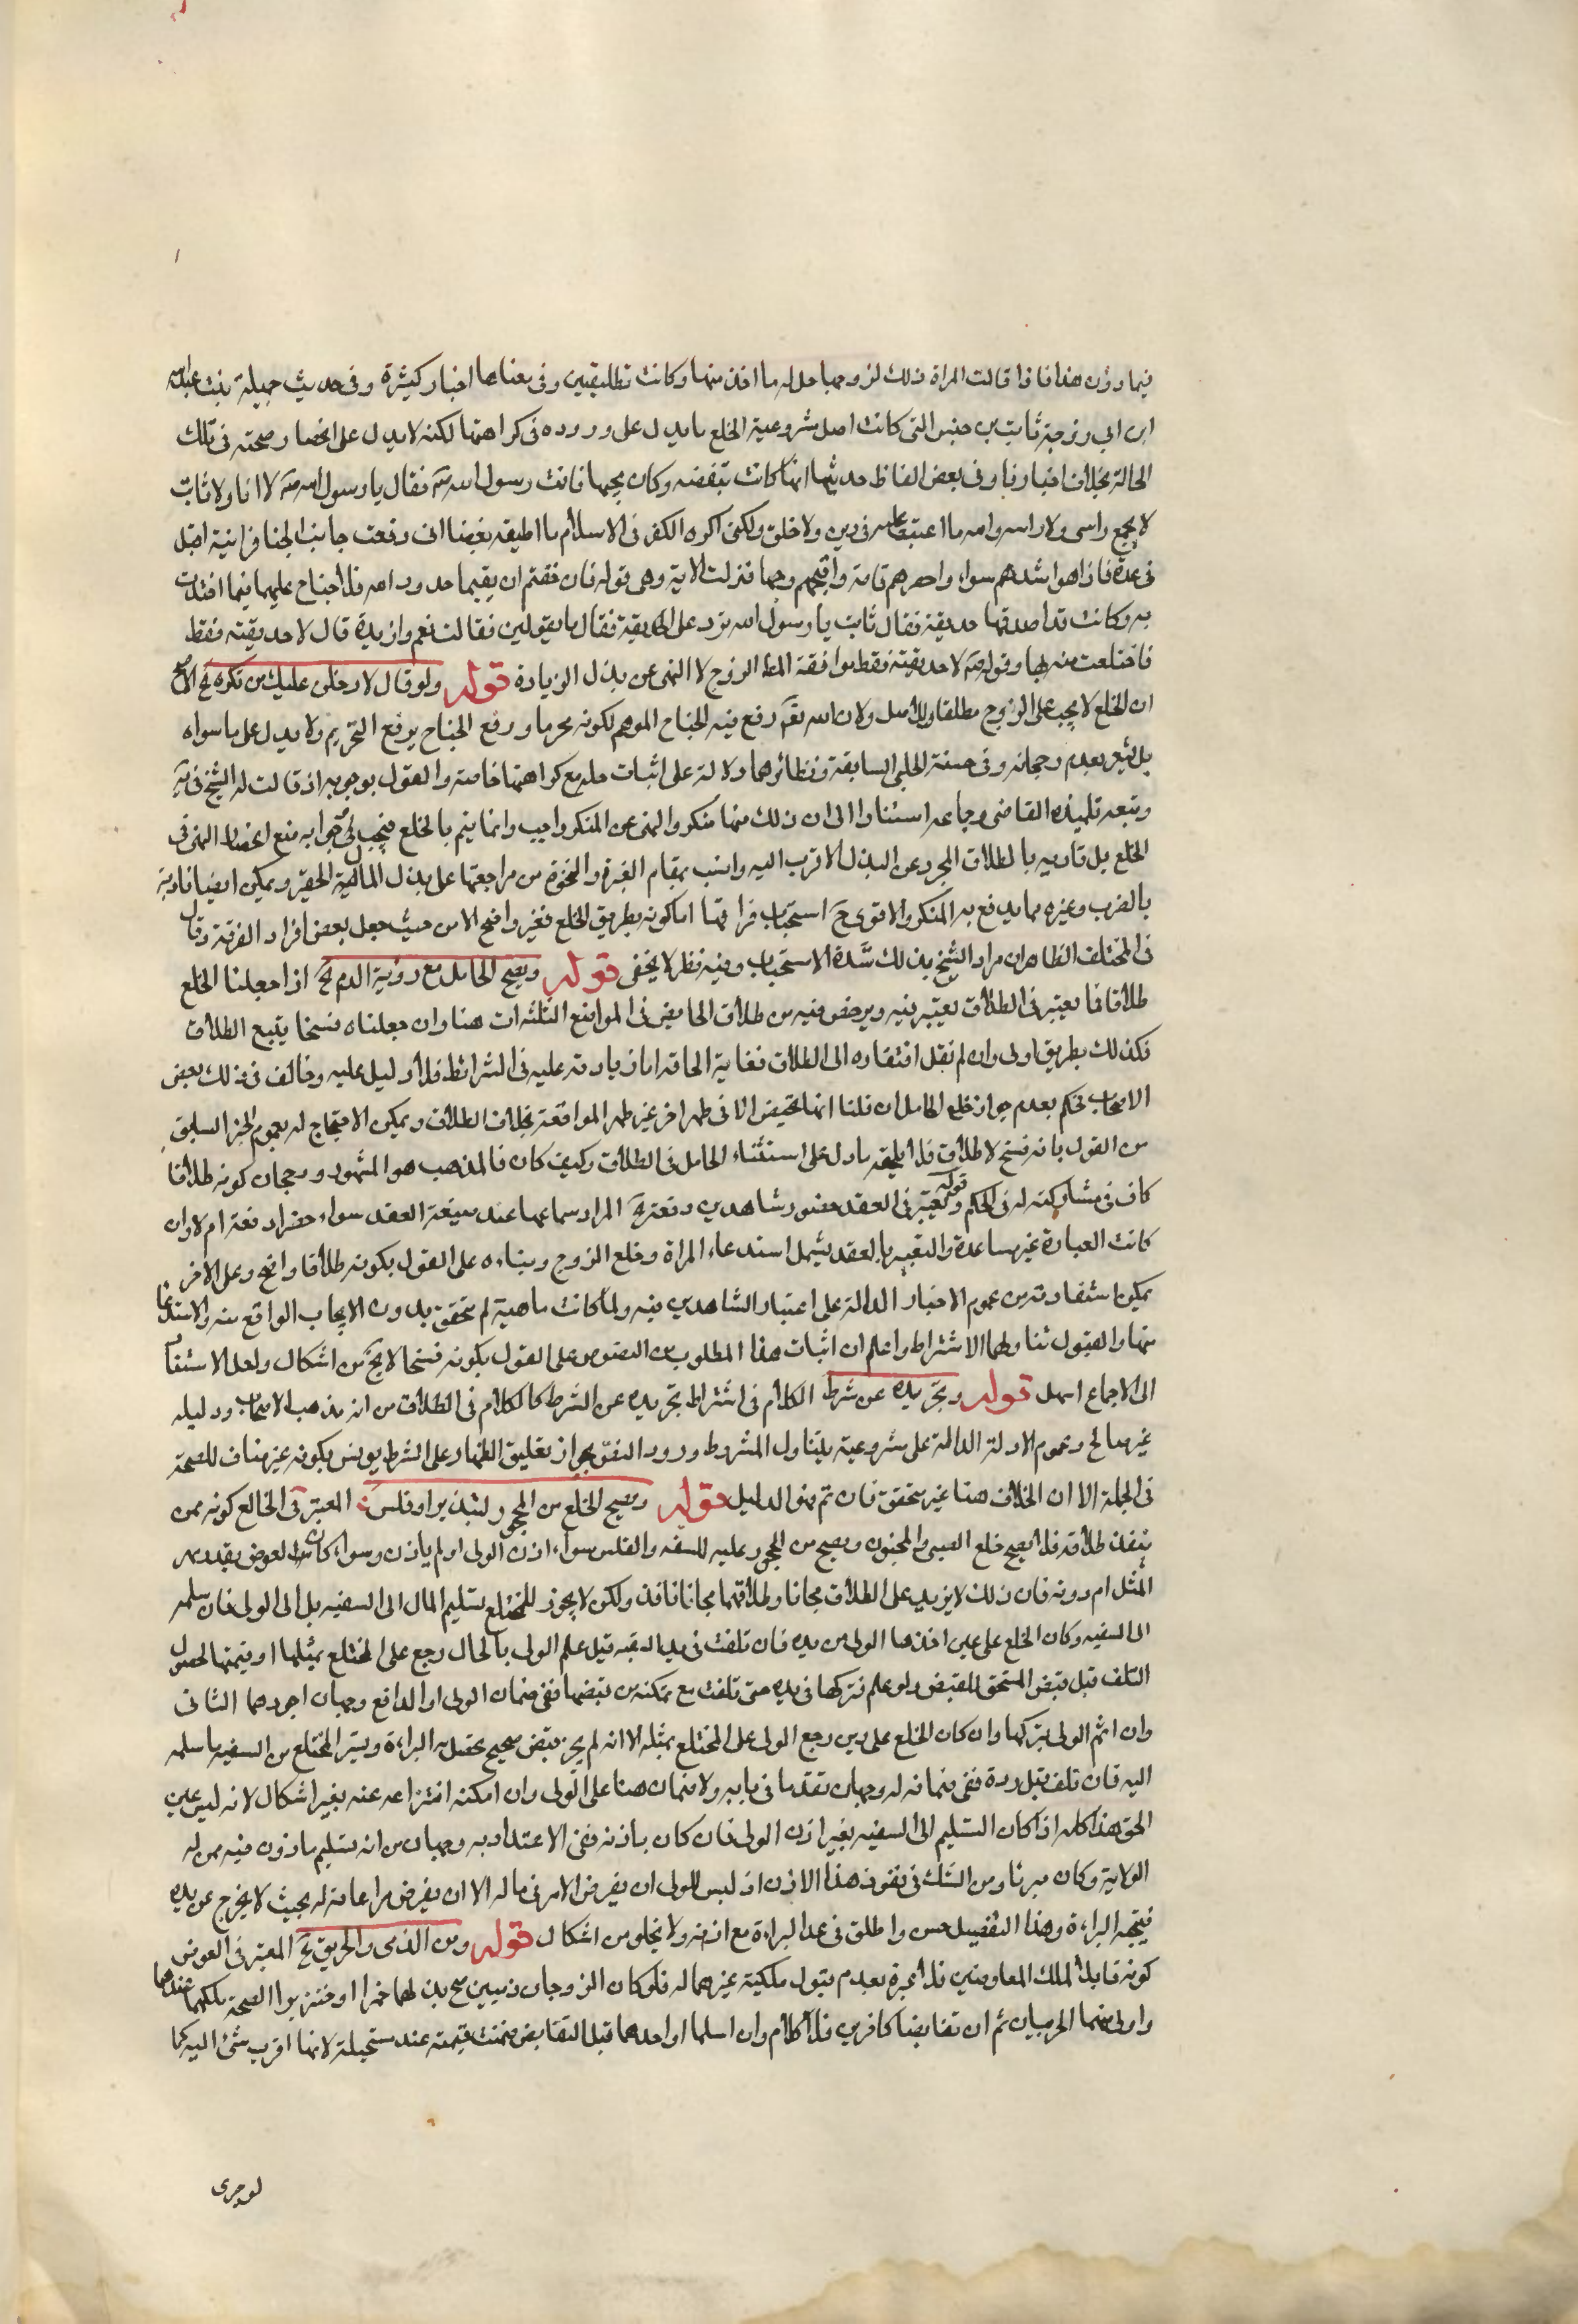 فيما دون هذا فاذا قالت المراة ذلك لزوجها حل له ما اخذ منها وكانت تطليقتين وفى معناها اخبار كثيرة وفى حديث جميلة بنت عبد الله
ابن ابي زوجة ثابت بن قيس التى كانت اصل مشروعية الخلع ما يدل على وروده فى كراهتها لكنه لا يدل على انحصار صحته فى تلك
الحالة بخلاف اخبارنا وفى بعض الفاظ حديثها انها كانت تبغضه وكان يحبها فاتت رسول الله صه فقال يا رسول الله صه لا انا ولا ثابت
لا يجمع راسى وراسه والله ما اعتب عليه فى دين ولا خلق ولكنى اكره الكفر فى الاسلام ما اطيقه بغضا انى رفعت جانب الخبا فراءيته اقبل
فى عدة فاذا هو اشدهم سوادا واقصرهم قامة واقبحهم وجها فنزلت الاية وهى قوله فان خفتم ان يقيما حدود الله فلا جناح عليهما فيما افتدت
به وكانت قد اصدقها حديقة فقال ثابت يا رسول الله ترد على الحديقة فقال ما تقولين فقالت نعم وازيده قال لا حديقته فقط
فاختلعت منه بها وقوله صه لا حديقته فقط موافقة لمط الزوج لا النهى عن بذل الزيادة قوله ولو قال لادخلن عليك من تكره لخ الاصح
ان الخلع لا يجب على الزوج مطلقا وللاصل ولان الله تعم رفع فيه الجناح الموهم لكونه محرما ورفع الجناح يرفع التحريم ولا يدل على ما سواه
بل يشعر بعدم رجحانه وفى حسنة الحلبى السابقة ونظائرها دلالة على اثبات حله مع كراهتها خاصة والقول بوجوبه اذ قالت له الشيخ فى يه
وتبعه تلميذه القاضى وجماعه استنادا الى ان ذلك منها منكر والنهى عن المنكر واجب وانما يتم بالخلع فيجب وجوابه منع انحصار النهى فى
الخلع بل تاديبه بالطلاق المجرد عن البذل الاقرب اليه وانسب بمقام الغيرة والنخوة من مراجعتها على بذل المال الحقير ويمكن ايضا تاديبه
بالضرب وغيره مما يدفع به المنكر والاقوى ح استحباب فراقها اما كونه بطريق الخلع فغير واضح الا من حيث جعل بعض افراد الفرقة وقال
فى المختلف الظاهر ان مراد الشيخ بذلك شدة الاستحباب وفيه نظر لا يخفى قوله ويصح الحامل مع رؤية الدم لخ اذا جعلنا الخلع
طلاقا فما يعتبر فى الطلاق يعتبر فيه ويرخص فيه من طلاق الحايض فى المواضع الثلثه ات هنا وان جعلناه فسخا يتبع الطلاق
فكذلك بطريق اولى وان لم نقل افتقاره الى الطلاق فغاية الحاقه اما زيادته عليه فى الشرائط فلا دليل عليه وخالف فى ذلك بعض
الاصحاب فحكم بعدم جواز خلع الحامل ان قلنا انها تحيض الا فى طهر اخر غير طهر المواقعة بخلاف الطلاق ويمكن الاحتجاج له بعموم الخبر السابق
من القول بانه فسخ لا طلاق فلا يلحقه ما دل على استثناء الحامل فى الطلاق وكيف كان فالمذهب هو المشهور ورجحان كونه طلاقا
كاف فى مشاركته له فى الحكم قوله ويعتبر فى العقد حضور شاهدين دفعة لخ المراد سماعهما عند صيغة العقد سواء حضرا دفعة ام لا وان
كانت العبارة غير مساعدة والتعبير بالعقد يشمل استدعاء المراة وخلع الزوج وبناءه على القول بكونه طلاقا واضح وعلى الاخر
يمكن استفادته من عموم الاخبار الدالة على اعتبار الشاهدين فيه ولما كانت ماهية لم تتحقق بدون الايجاب الواقع منه والاستدعا
منها والقبول تناولها الاشتراط واعلم ان اثبات هذا المطلوب من النصوص على القول بكونه فسخا لا يخ من اشكال ولعل الاستناد
الى الاجماع اسهل قوله وتجريده عن شرط الكلام فى اشتراط تجريده عن الشرط كالكلام فى الطلاق من انه مذهب الاصحاب ودليله
غير صالح وعموم الادلة الدالة على شروعية يتناول المشروط وورود النص بجواز تعليق الظهار على الشرط يونس بكونه غير مناف للصحة
فى الجملة الا ان الخلاف هنا غير متحقق فان تم فهو الدليل قوله ويصح الخلع من المحجور لتبذير او فلس لخ المعتبر فى الخالع كونه ممن
ينفذ طلاقه فلا يصح خلع الصبى والمجنون ويصح من المحجور عليه للسفه والفلس سواء اذن الولى او لم ياذن وسواء كان العوض بقدر مهر
المثل ام دونه فان ذلك لا يزيد على الطلاق مجانا وطلاقهما مجانا نافذ ولكن لا يجوز للمختلع تسليم المال الى السفيه بل الى الولى فان سلمه
الى السفيه وكان الخلع على عين اخذها الولى من يده فان تلفت فى يد السفيه قبل علم الولى بالحال رجع على المختلع بمثلها او قيمتها لحصول
التلف قبل قبض المستحق للقبض ولو علم فتركها فى يده حتى تلفت مع تمكنه من قبضها ففى ضمان الولى او الدافع وجهان اجودهما الثانى
وان اثم الولى بتركها وان كان الخلع على دين رجع الولى على المختلع بمثله الا انه لم يجز قبض صحيح تحصل به البراءة ويسترد المختلع من السفيه ما سلمه
اليه فان تلف قبل رده ففى ضمانه له وجهان تقدما فى بابه ولا ضمان هنا على الولى وان امكنه انتزاعه عنه بغير اشكال لانه ليس عين
الحق هذا كله اذا كان التسليم الى السفيه بغير اذن الولى فان كان باذنه ففى الاعتداد به وجهان من انه تسليم ماذون فيه ممن له
الولاية وكان مبرئا ومن الشك فى نفوذ هذا الاذن اذ ليس للولى ان يفوض الامر فى ماله الا ان يفرض مراعاته له بحيث لا يخرج عن يده
فيتجه البراءة وهذا التفصيل حسن واطلق فى عد البراءة مع اذنه ولا يخلو من اشكال قوله ومن الذمى والحربى لخ المعتبر فى العوض
كونه قابلا لملك المعاوضين فلا عبرة بعدم قبول ملكية غيرهما له فلو كان الزوجان ذميين صح بذلهما خمرا او خنزيرا لصحة ملكهما عندهما
واولى منهما الحربيان ثم ان تقابضا كافرين فلا كلام وان اسلما او احدهما قبل التقابض ضمنت قيمته عند مستحيلة لانها اقرب شئ اليه كما
لو جرى